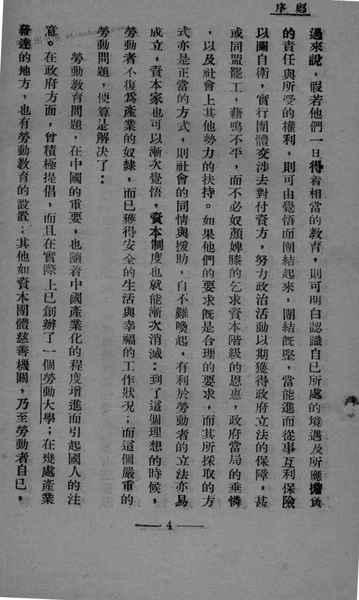 彭序
過來說，假若他們一日得着相當的教育，則可明白認識自已所處的境遇及所應擔負
的責任與所受的權利，則可由覺悟而團結起來，團結旣堅，當能進而從事互利保險
以圖自衛，實行團體交涉去對付資方，努力政治活動以期獲得政府立法的保障，甚
或同盟罷工，藉鳴不平，而不必奴顏婢膝的乞求資本階級的恩惠，政府當局的垂憐
，以及社會上其他勢力的扶持。如果他們的要求旣是合理的要求，而其所採取的方
式亦是正當的方式，則社會的同情與援助，自不難喚起，有利於勞動者的立法亦易
成立，資本家也可以漸次覺悟，資本制度也就能漸次消滅：到了這個理想的時候，
勞動者不復爲產業的奴隸，而已獲得安全的生活與幸福的工作狀況；而這個嚴重的
勞動問題，便算是解決了：
勞動教育問題，在中國的重要，也隨着中國產業化的程度增進而引起國人的注
意。在政府方面，曾積極提倡，而且在實際上已創辦了一個勞動大學；在幾處產業
發達的地方，也有勞動教育的設置；其他如資本團體慈善機關，乃至勞動者自已，
4